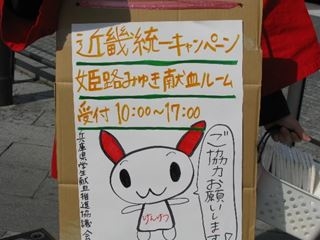 近畿統一キャンペーン
姫路みゆき献血ルーム
受付 10:00～17:00
ご協力お願いします♡
けんけつ
兵庫県学生献血推進協議会